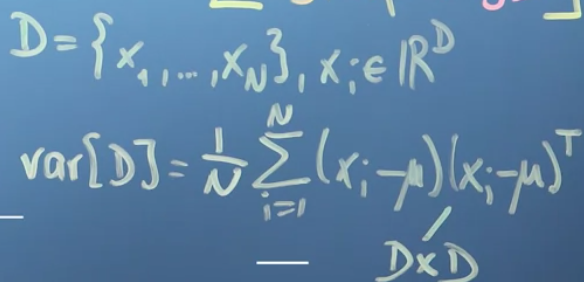 D = {x₁, ..., x_N}, x_i ∈ ℝ^D
var[D] = 1/N ∑_{i=1}^{N} (x_i - μ)(x_i - μ)^T
D×D